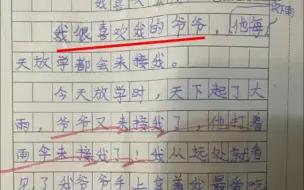 我很喜欢我的爷爷，他每
天放学都会来接我。
今天放学时，天下起了大
雨，爷爷又来接我了，他打着
雨伞来接我了！我从远处就看
见了我爷爷手上拿着我最喜欢